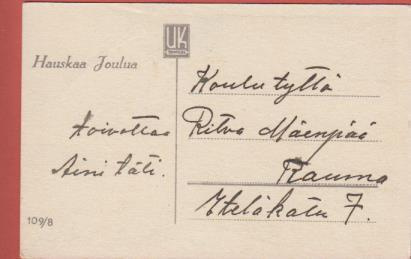 UK
Hauskaa Joulua
toivottaa
Aini täti.
Koulutyttö
Ritva Mäenpää
Rauma
Eteläkatu 7.
109/8